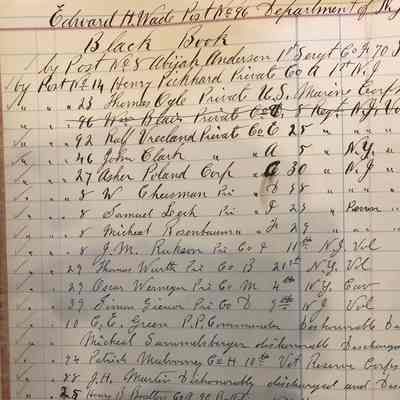 Edward H. Wade Post No 96 Department of
Black Book
1 by Post No 5 Abijah Anderson 1st Sergt Co F 70
by Post No 14 Henry Pickhard Private Co A 1st N.J
" " " 23 Thomas Ogle Private U.S. Marine Corps
" " " 96 Private Co 5 Regt N.J. Vo
" " " 92 Ralf Vreeland Private Co C 25 "
" " " 46 John Clark " " A 5 " N.Y. "
" " " 27 Asher Poland Corp 30 " N.J "
" " " 8 W Cheesman Pri " D 88 " "
" " " 8 Samuel Lech Pri " 23 "
" " " 8 Micheal Rosenbaum " 29 " "
" " " 8 J.M. Pri Co 11th N.J. Vol
" " " 29 Thomas Pri Co B 21st N.Y. Vol
" " " 29 Oscar Werneger Pri Co M 4th N.Y. Cav
" " " 39 Pri Co D 9th N.J Vol
" " " 10 C.E. Green P.P. Commander Dishonorable
" " " Micheal Sammelsberger dishonorably Discharge
" " " Patrick Mulvaney Co H 10th Vet Reserve Corps
" " " 88 J.H. Martin Dishonorably discharged and
" " " 25 Henry